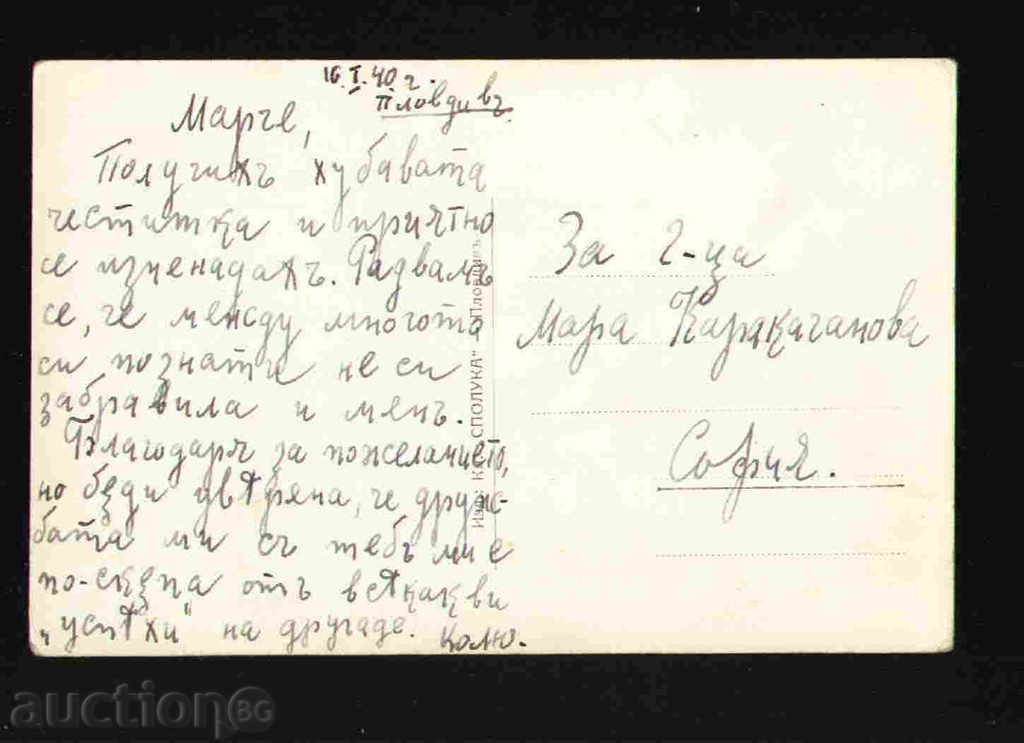 16.I.40 г.
Пловдивъ.
Марче,
Получихъ хубавата
честитка и приятно
се изненадахъ. Радвамъ
се, че между многото
си познати не си
забравила и менъ.
Благодаря за пожеланието,
но бѫди увѣрена, че друж-
бата ми съ тебъ ми е
по-скѫпа отъ всѣкакви
„успѣхи“ на другаде. Колю.
За г-ца
Мара Каракачанова
София.
СПОЛУКА" - Пловдивъ
auctionBG